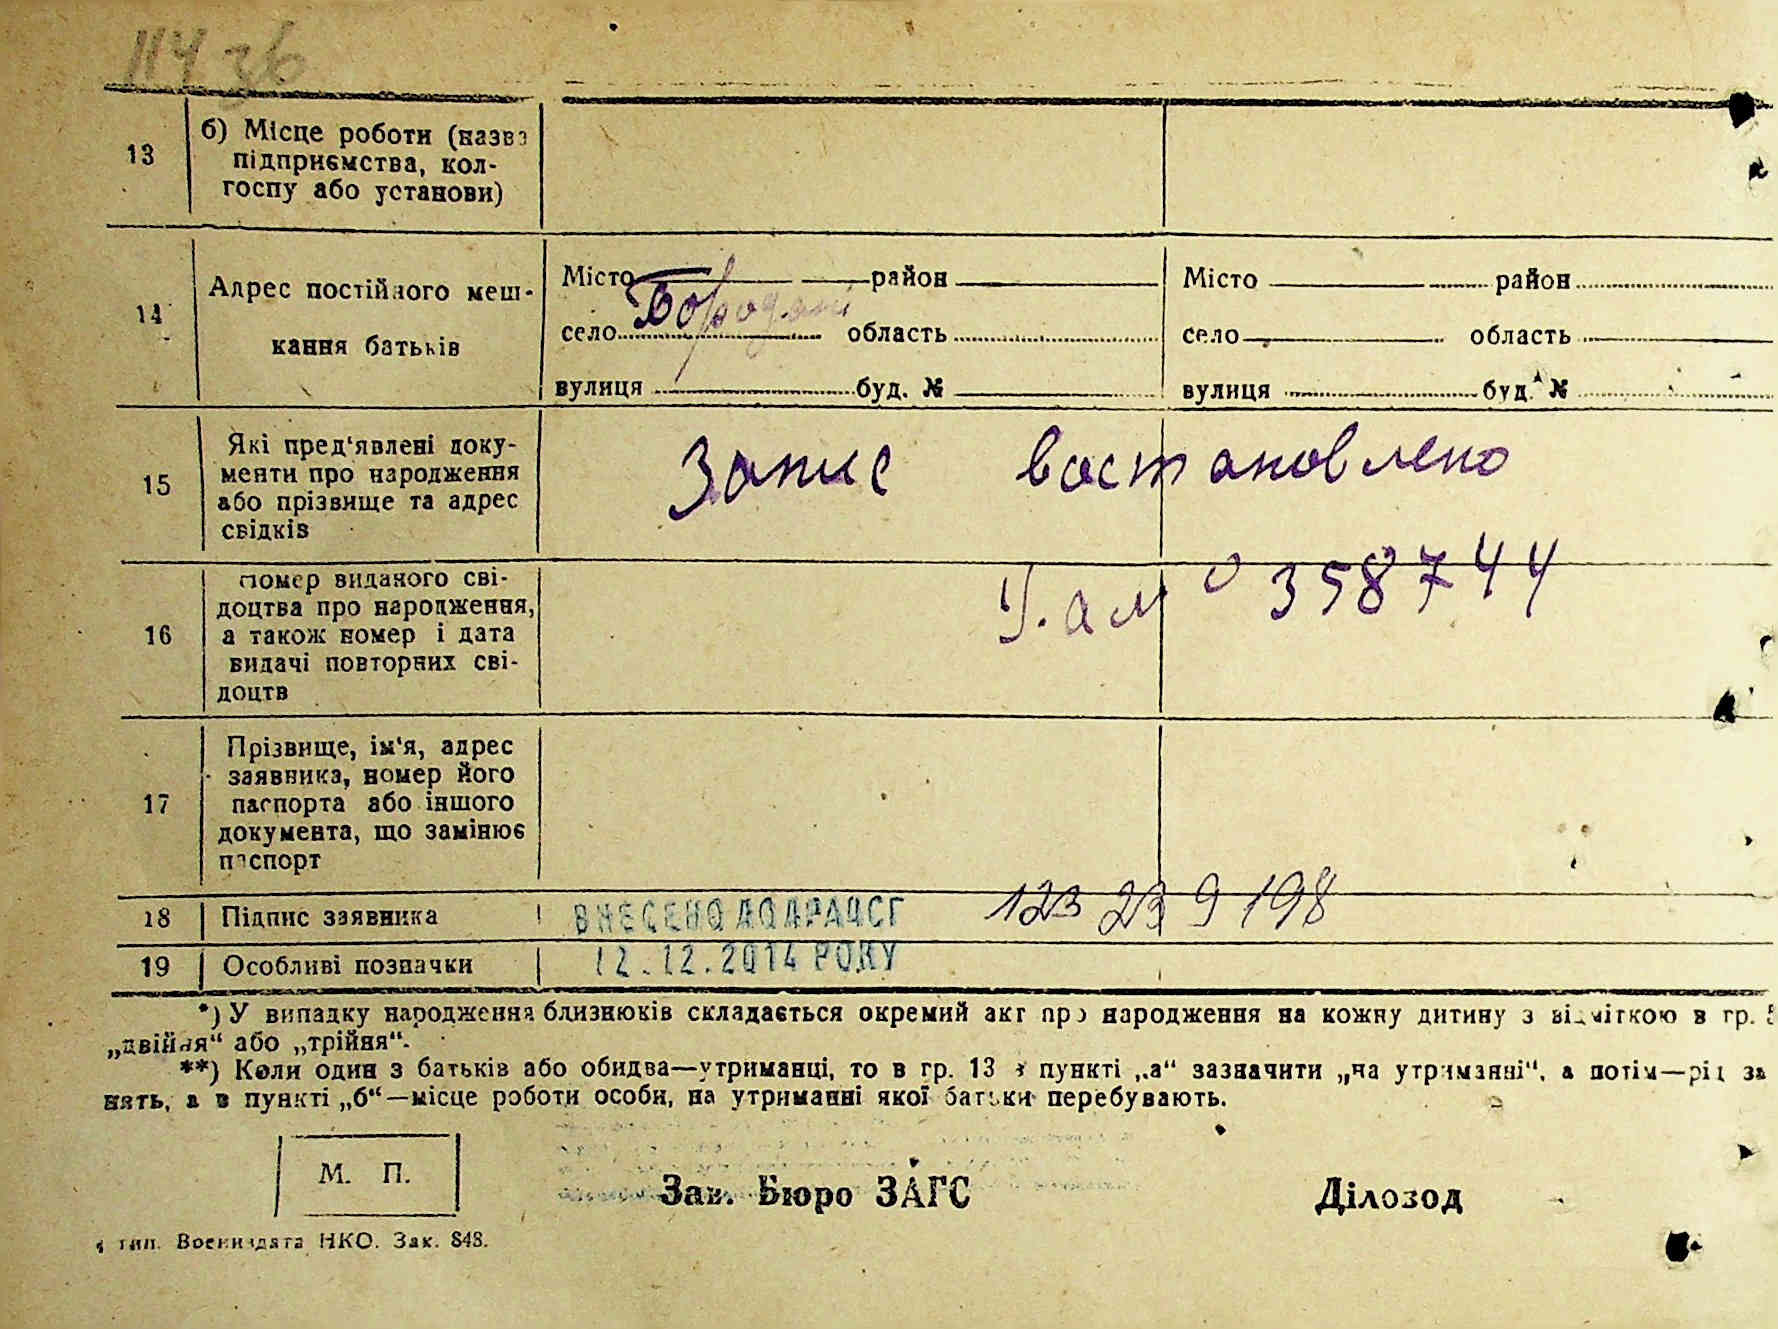 114 зб
13
б) Місце роботи (назва
підприємства, кол-
госпу або установи)
14
Адрес постійного меш-
кання батьків
Місто район
село Бородані область
вулиця буд. №
Місто район
село область
вулиця буд. №
15
Які пред'явлені доку-
менти про народження
або прізвище та адрес
свідків
Запис востановлено
16
номер виданого сві-
доцтва про народження,
а також номер і дата
видачі повторних сві-
доцтв
358744
17
Прізвище, ім'я, адрес
заявника, номер його
паспорта або іншого
документа, що замінює
паспорт
18 Підпис заявника
ВНЕСЕНО ДО ДРАЦСГ
123 23 9 198
19 Особливі позначки
12.12.2014 РОКУ
*) У випадку народження близнюків складається окремий акт про народження на кожну дитину з відміткою в гр. 5
„двійня“ або „трійня“.
**) Коли один з батьків або обидва—утриманці, то в гр. 13 в пункті „а“ зазначити „на утриманні“, а потім—рід за
нять, а в пункті „б“—місце роботи особи, на утриманні якої батьки перебувають.
М. П.
Зав. Бюро ЗАГС
Діловод
тип. Воениздата НКО. Зак. 848.